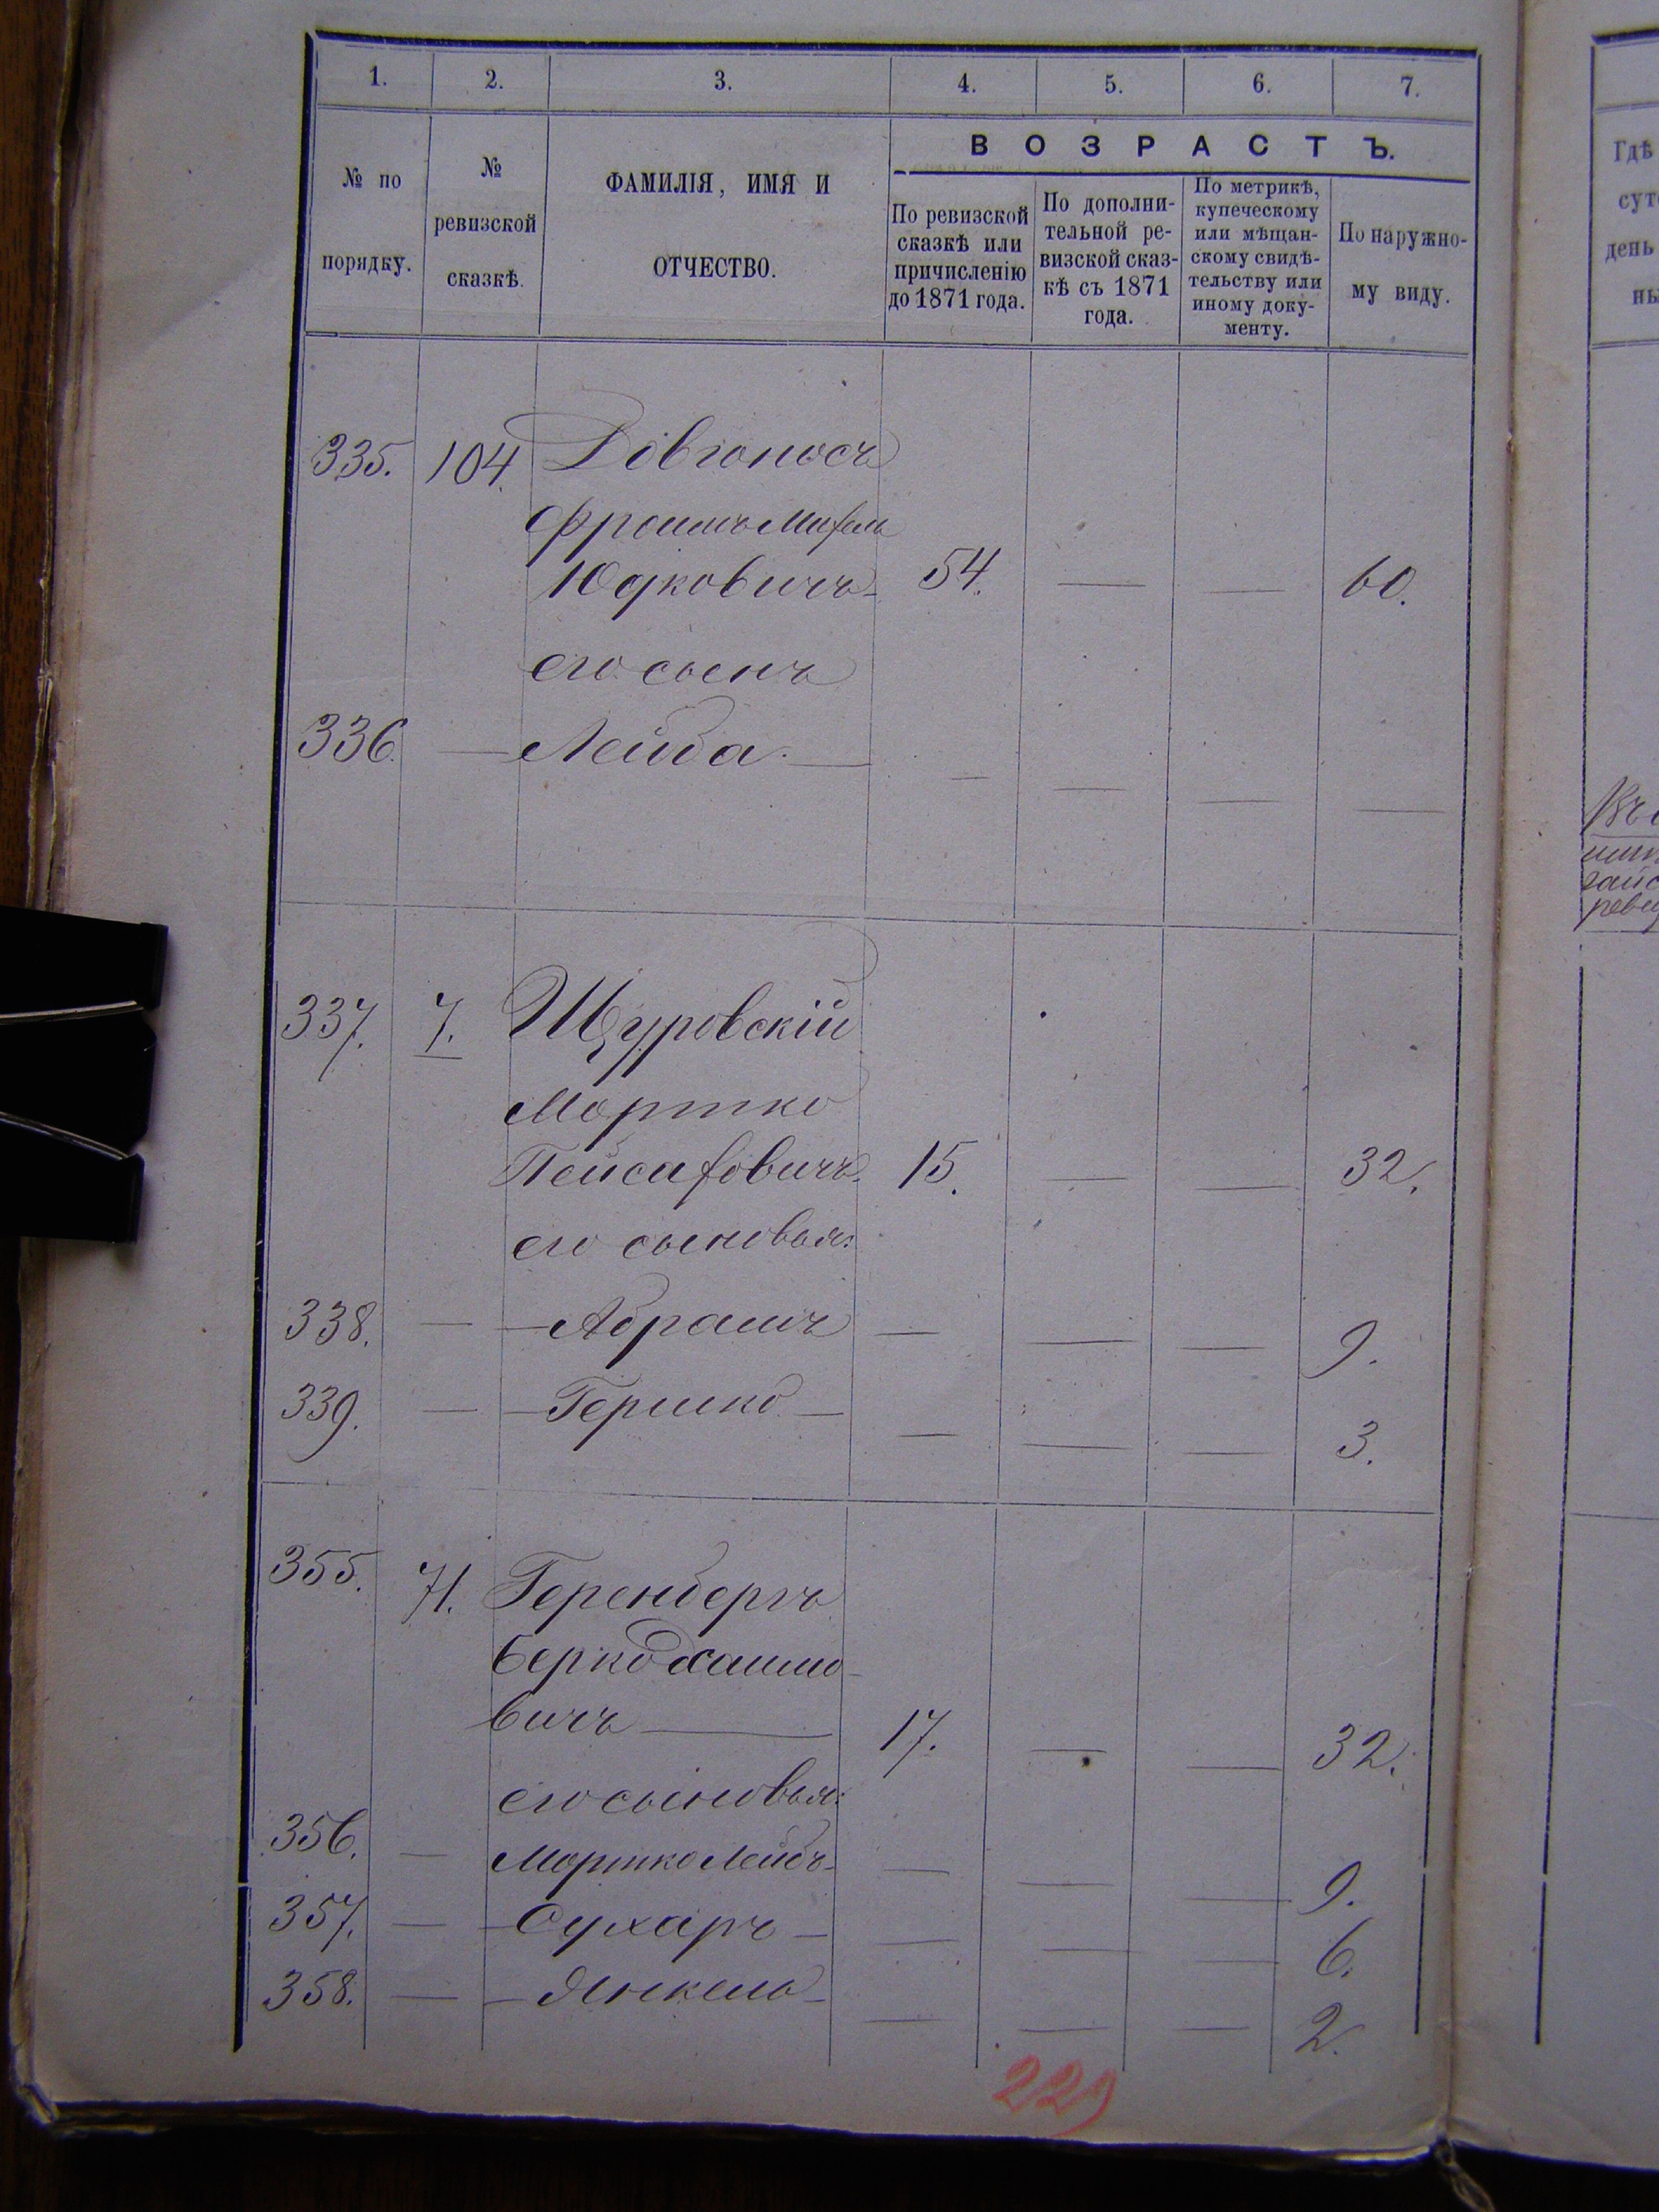 1. 2. 3. 4. 5. 6. 7.
№ по порядку.
№ ревизской сказкѣ.
ФАМИЛІЯ, ИМЯ И ОТЧЕСТВО.
ВОЗРАСТЪ.
По ревизской сказкѣ или причисленію до 1871 года.
По дополнительной ревизской сказкѣ съ 1871 года.
По метрикѣ, купеческому или мѣщанскому свидѣтельству или иному документу.
По наружному виду.
335. 104. Довгоносъ
Фроимъ Михель
Юдковичъ 54. — — 60.
его сынъ
336. — Лейба — — — — —
337. 7. Щуровскій
Мортко
Пейсаховичъ 15. — — 32.
его сыновья:
338. — Абрамъ — — — 9.
339. — Гершко — — — 3.
355. 71. Геренбергъ
Берко Хаимо-
вичъ — 17. — — 32.
его сыновья:
356. — Мортко Лейбъ — — — 9.
357. — Сухаръ — — — 6.
358. — Янкель — — — 2.
229
Гдѣ
день